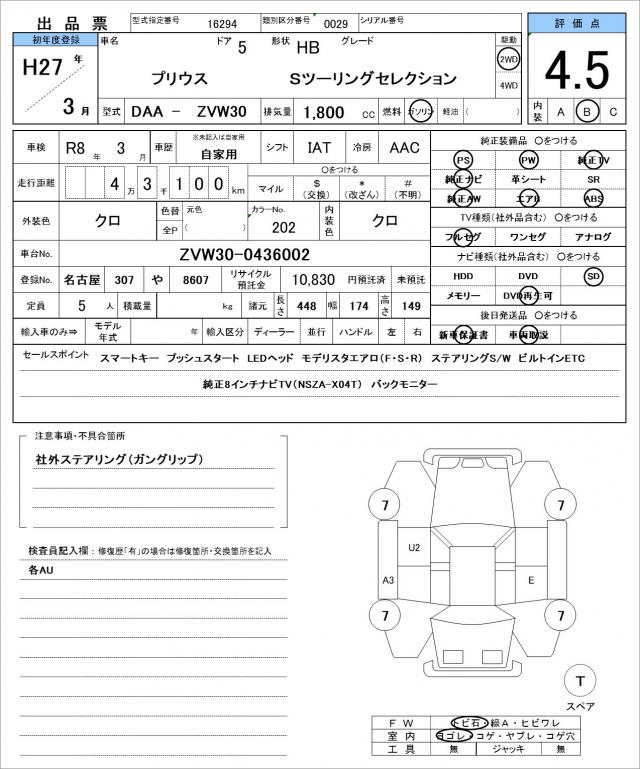 出品票 型式指定番号 16294 類別区分番号 0029 シリアル番号 評価点
初年度登録 車名 ドア 5 形状 HB グレード 駆動
H27年 プリウス Sツーリングセレクション 2WD 4.5
4WD
3月 型式 DAA － ZVW30 排気量 1,800 cc 燃料 ガソリン 軽油 ( ) 内装 A B C
車検 R8年 3月 車歴 ※未記入は自家用 自家用 シフト IAT 冷房 AAC 純正装備品 ○をつける
PS PW 純正TV
走行距離 4万 3千 1 0 0 km ○をつける
マイル $(交換) *(改ざん) #(不明)
純正ナビ 革シート SR
純正AW エアB ABS
外装色 クロ 色替 元色 全P ( ) カラーNo. 202 内装色 クロ
TV種類(社外品含む) ○をつける
フルセグ ワンセグ アナログ
車台No. ZVW30-0436002
ナビ種類(社外品含む) ○をつける
登録No. 名古屋 307 や 8607 リサイクル預託金 10,830 円預託済 未預託
HDD DVD SD
定員 5 人 積載量 kg 諸元 長さ 448 幅 174 高さ 149
メモリー DVD再生可
後日発送品 ○をつける
輸入車のみ⇒ モデル年式 年 輸入区分 ディーラー 並行 ハンドル 左 右
新車保証書 車両取説
セールスポイント スマートキー プッシュスタート LEDヘッド モデリスタエアロ(F・S・R) ステアリングS/W ビルトインETC
純正8インチナビTV(NSZA-X04T) バックモニター
注意事項・不具合箇所
社外ステアリング(ガングリップ)
検査員記入欄：修復歴「有」の場合は修復箇所・交換箇所を記入
各AU
7 7
U2
A3 E
7 7
T
スペア
FW トビ石・線A・ヒビワレ
室内 ヨゴレ・コゲ・ヤブレ・コゲ穴
工具 無 ジャッキ 無